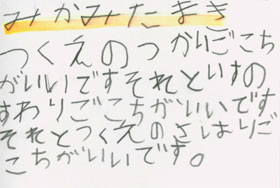 みかみたまき
つくえのつかいごこち
がいいですそれといすの
すわりごこちがいいです
それとつくえのさはりご
こちがいいです。